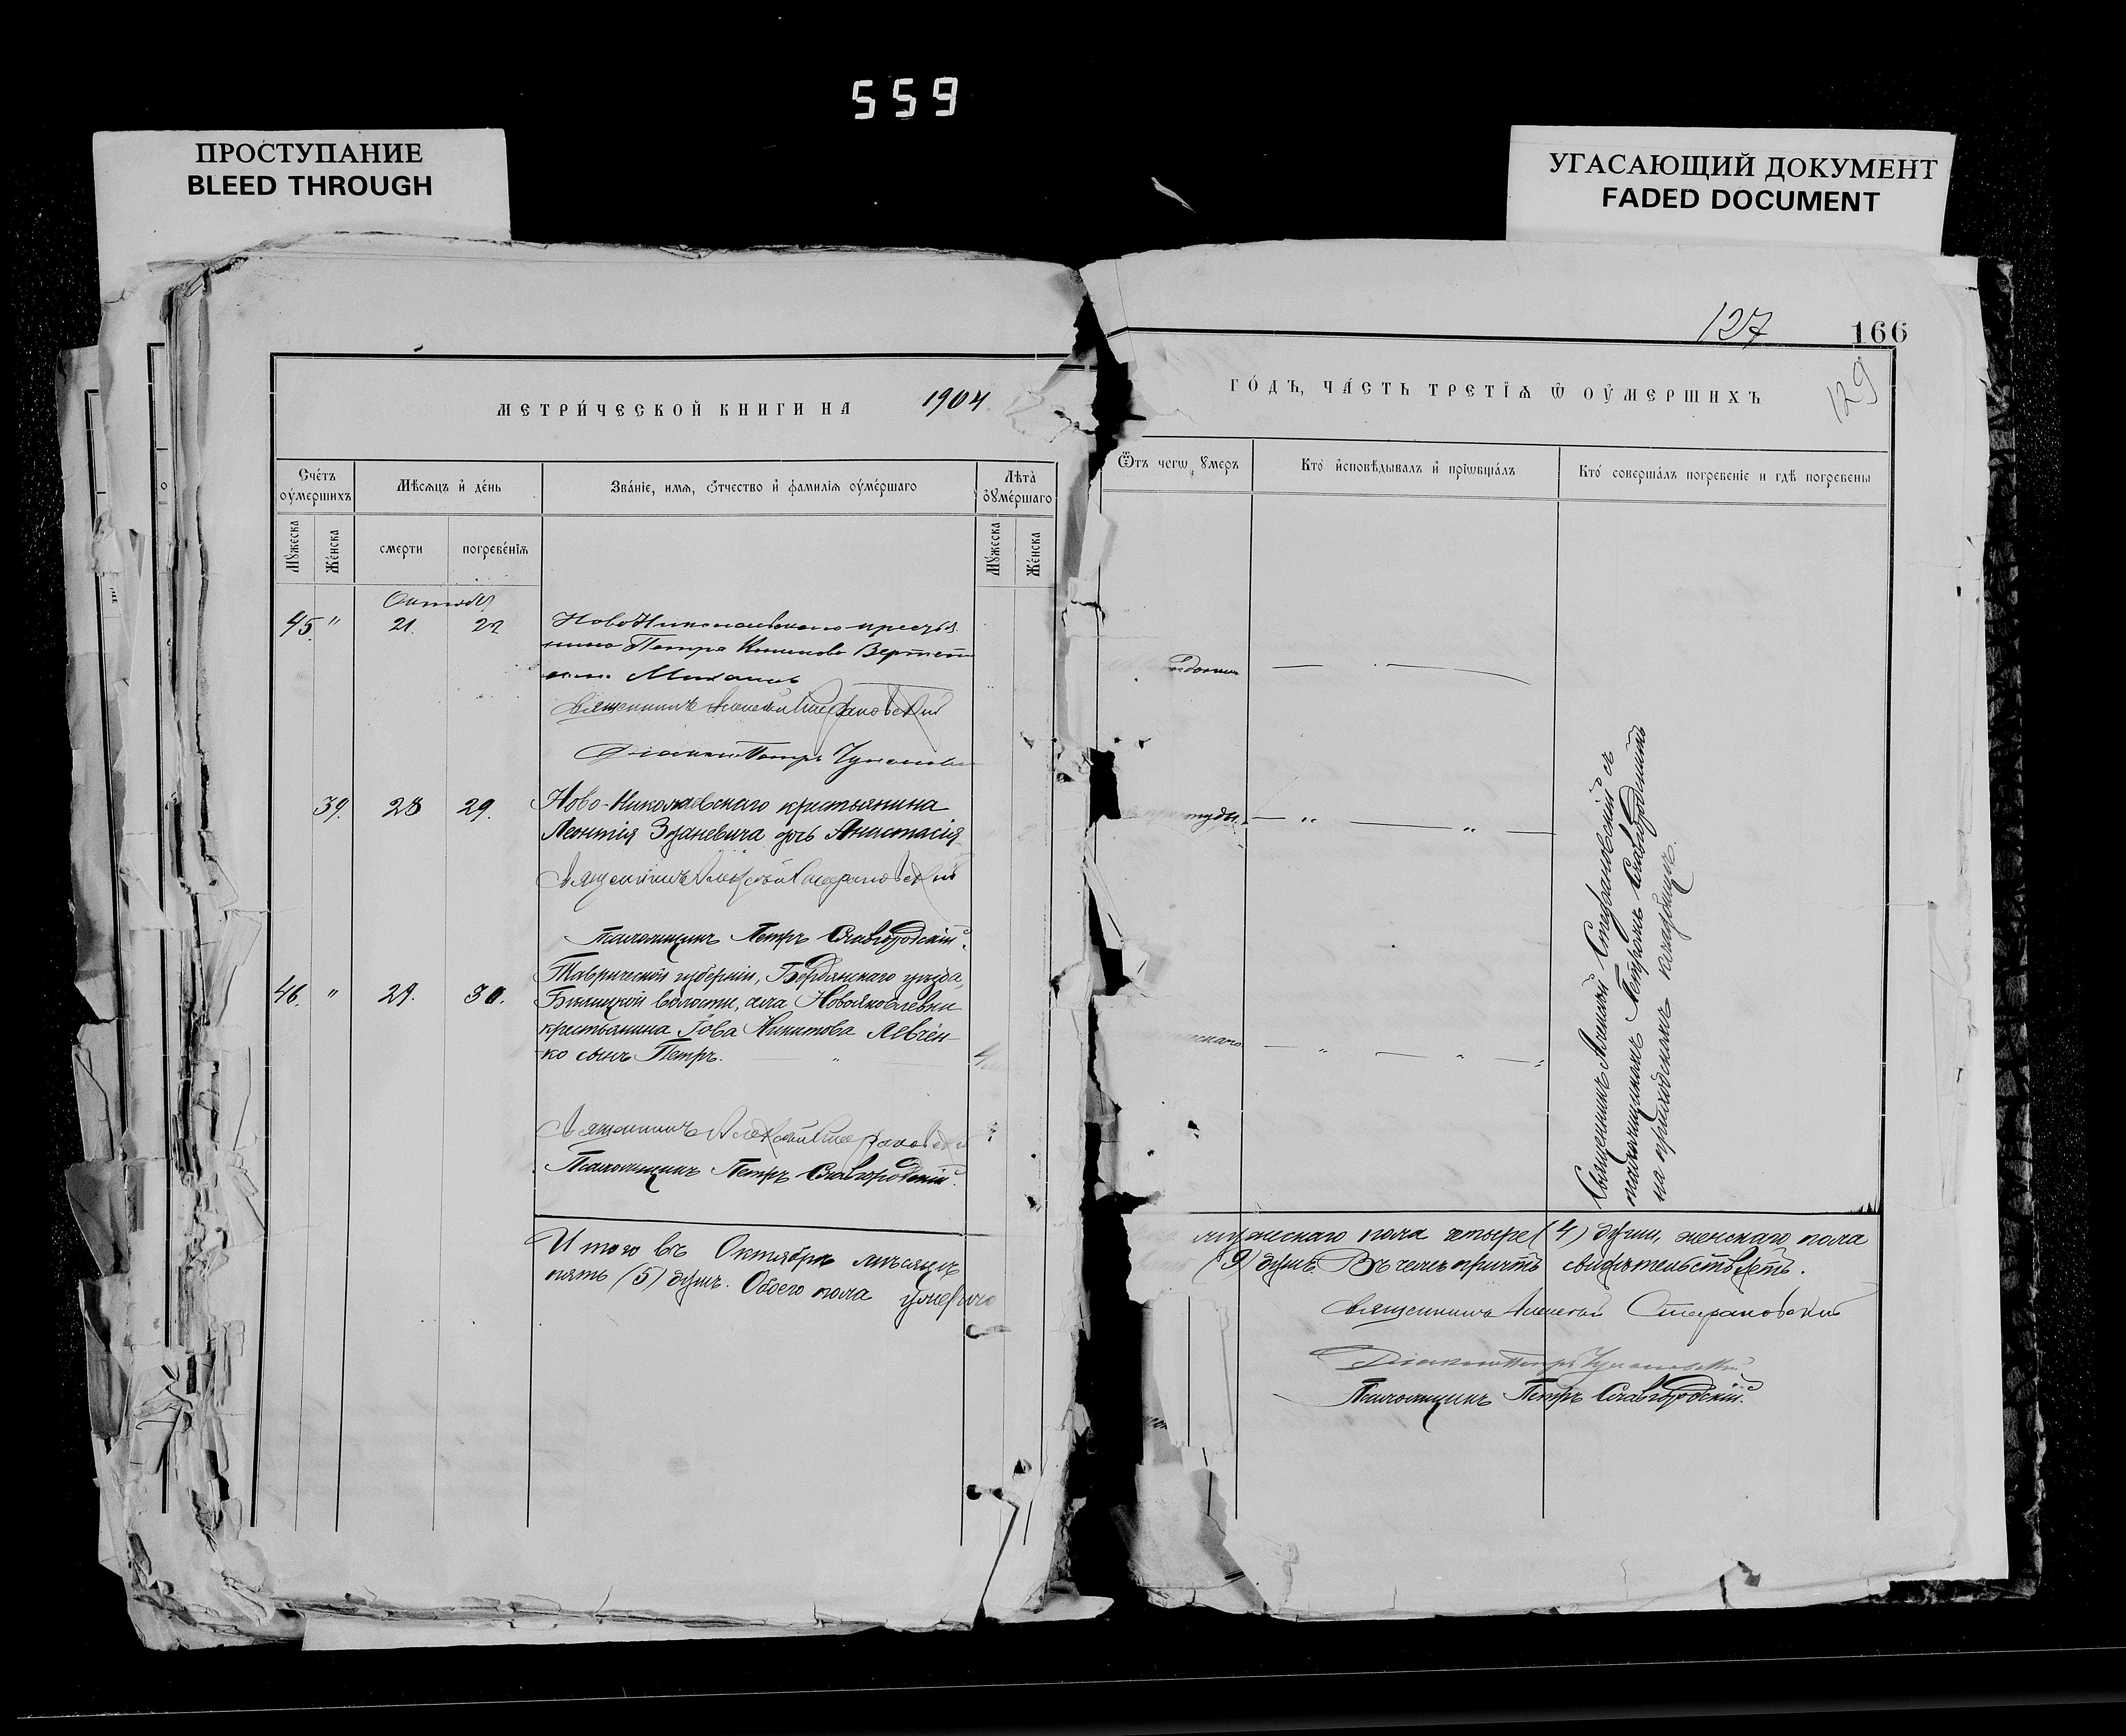 559
ПРОСТУПАНИЕ
BLEED THROUGH
УГАСАЮЩИЙ ДОКУМЕНТ
FADED DOCUMENT
127
166
129
МЕТРИ́ЧЕСКОЙ КНИГИ НА 1904
ГО́ДЪ, ЧА́СТЬ ТРЕТІѦ Ѿ ОУ҆МЕРШИХЪ
Сче́тъ оу҆ме́ршихъ
Мѣ́сѧцъ и҆ де́нь
Зва́нїе, имѧ, ѻ҆́тчество и҆ фамилїѧ оу҆ме́ршаго
Лѣта̀ ᲂу҆ме́ршаго
Ѿтъ чегѡ ᲂу҆меръ
Кто̀ и҆сповѣ́дывалъ и҆ прїѡбща́лъ
Кто́ соверша́лъ погребенїе и гдѣ̀ погребены
Мꙋ́жеска
Же́нска
смерти
погребе́нїѧ
Мꙋ́жеска
Же́нска
Октябр
45. " 21. 22
Ново Николаевскаго крестья
нина Петра
Михаилъ
Священникъ Алексѣй Стефановскій
Діаконъ Петръ
39. 28 29. Ново-Николаевскаго крестьянина
Леонтія Зданевича дочь Анастасія
Священникъ Алексѣй Стефановскій
Псаломщикъ Петръ Славгородскій.
Таврической губерніи, Бердянскаго уѣзда,
46. " 29. 30. волости, села Новояковлевки
крестьянина Іова Никитова Левчен-
ко сынъ Петръ.
Священникъ Алексѣй Стефановскій
Псаломщикъ Петръ Славгородскій.
Священникъ Алексѣй Стефановскій съ
псаломщикомъ Петромъ Славгородскимъ
на приходскомъ кладбищѣ.
Итого въ Октябрѣ мѣсяцѣ
мужескаго пола четыре (4) души, женскаго пола
пять (5) душъ. Обоего пола умерло
(9) душъ. Въ чемъ причтъ свидѣтельствуетъ.
Священникъ Алексѣй Стефановскій
Діаконъ Петръ
Псаломщикъ Петръ Славгородскій.